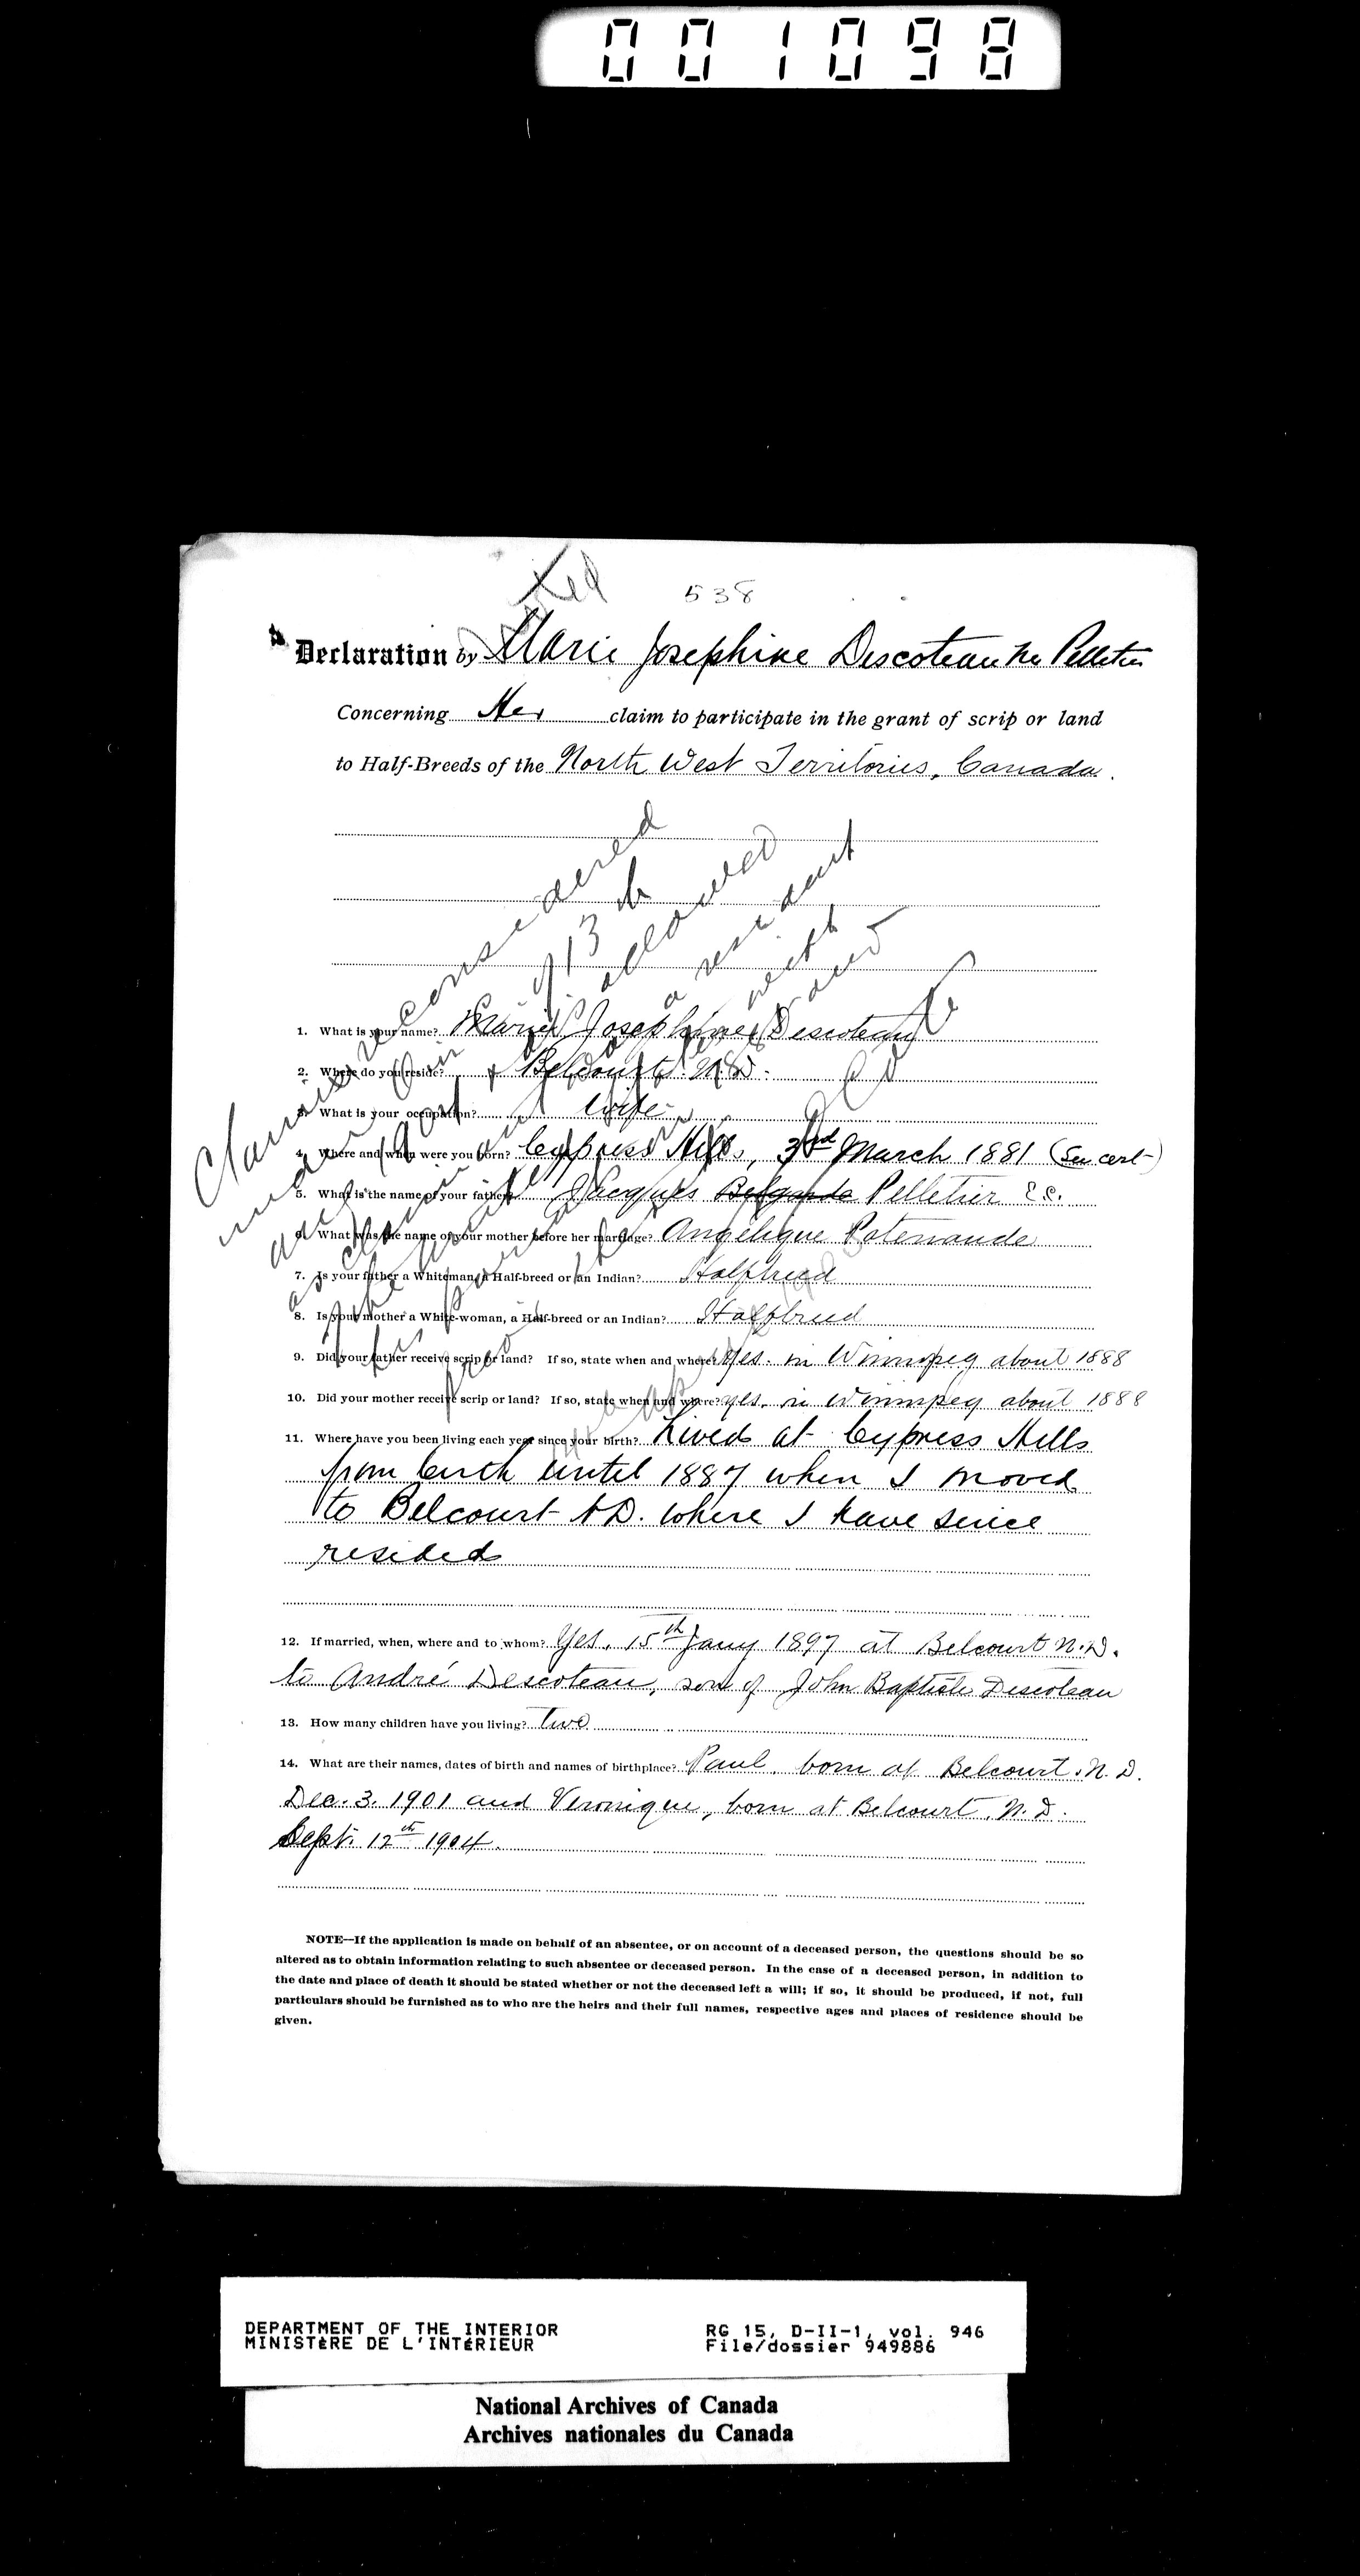 001098
538
Declaration by Marie Josephine Descoteau née Pelletier
Concerning Her claim to participate in the grant of scrip or land
to Half-Breeds of the North West Territories, Canada.
Claim reconsidered
under
13th
and
allowed
as claimant
a resident
1. What is your name? Marie Josephine Descoteau
2. Where do you reside? Belcourt N.D.
3. What is your occupation? Wife
4. Where and when were you born? Cypress Hills, 3rd March 1881 (See cert)
5. What is the name of your father? Jacques Belgarde Pelletier
6. What was the name of your mother before her marriage? Angelique Patenaude
7. Is your father a Whiteman, a Half-breed or an Indian? Halfbreed
8. Is your mother a White-woman, a Half-breed or an Indian? Halfbreed
9. Did your father receive scrip or land? If so, state when and where? Yes. in Winnipeg about 1888
10. Did your mother receive scrip or land? If so, state when and where? yes, in Winnipeg about 1888
11. Where have you been living each year since your birth? Lived at Cypress Hills
from birth until 1887 when I moved
to Belcourt N.D. where I have since
resided
12. If married, when, where and to whom? Yes, 15th Jany 1897 at Belcourt N.D.
to André Descoteau, son of John Baptiste Descoteau
13. How many children have you living? Two
14. What are their names, dates of birth and names of birthplace? Paul, born at Belcourt, N.D.
Dec. 3. 1901 and Veronique, born at Belcourt, N.D.
Sept. 12th 1904.
NOTE—If the application is made on behalf of an absentee, or on account of a deceased person, the questions should be so
altered as to obtain information relating to such absentee or deceased person. In the case of a deceased person, in addition to
the date and place of death it should be stated whether or not the deceased left a will; if so, it should be produced, if not, full
particulars should be furnished as to who are the heirs and their full names, respective ages and places of residence should be
given.
DEPARTMENT OF THE INTERIOR RG 15, D-II-1, vol. 946
MINISTÈRE DE L'INTÉRIEUR File/dossier 949886
National Archives of Canada
Archives nationales du Canada